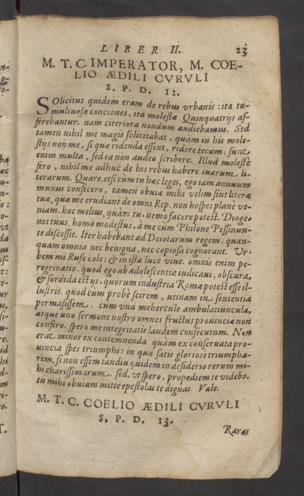 LIBER II. 23
M. T. C. IMPERATOR, M. COE-
LIO ÆDILI CVRVLI
S. P. D. 12.
SOlicitus quidem eram de rebus vrbanis: ita tu-
multuosæ conciones, ita molestæ Quinquatrijs af-
ferebantur. nam citeriora nondum audiebamus. Sed
tamen nihil me magis solicitabat, quàm in his mole-
stijs non me, si quæ ridenda essent, ridere tecum. sunt
enim multa, sed ea non audeo scribere. Illud molestè
fero, nihil me adhuc de his rebus habere tuarum li-
terarum. Quare, etsi cùm tu hæc leges, ego iam annuum
munus confecero, tamen obuiæ mihi velim sint literæ
tuæ, quæ me erudiant de omni Rep. non hospes planè ve-
niam. hoc melius, quàm tu, nemo facere potest. Dioge-
nes tuus, homo modestus, à me cum Philone Pessinun-
te discessit. Iter habebant ad Deiotarum regem: quan-
quam omnia nec benigna, nec copiosa cognorant. Vr-
bem mi Rufe cole: & in ista luce viue. omnis enim pe-
regrinatio, quod ego ab adolescentia iudicaui, obscura,
& sordida est ijs, quorum industria Romæ potest esse il-
lustris. quod cum probè scirem, vtinam in sententia
permansissem. cum vna mehercule ambulatiuncula,
atque vno sermone nostro omnes fructus prouinciæ non
confero. spero me integritatis laudem consecutum. Non
erat minor ex contemnenda quam ex conseruata pro-
uincia spes triumphi: in qua satis gloriosè triumpha-
rem, si non essem tandiu quidem in desiderio rerum mi-
hi charissimarum. sed, vt spero, propediem te videbo.
tu mihi obuiam mitte epistolas te dignas. Vale.
M. T. C. COELIO ÆDILI CVRVLI
S. P. D. 13.
Raras